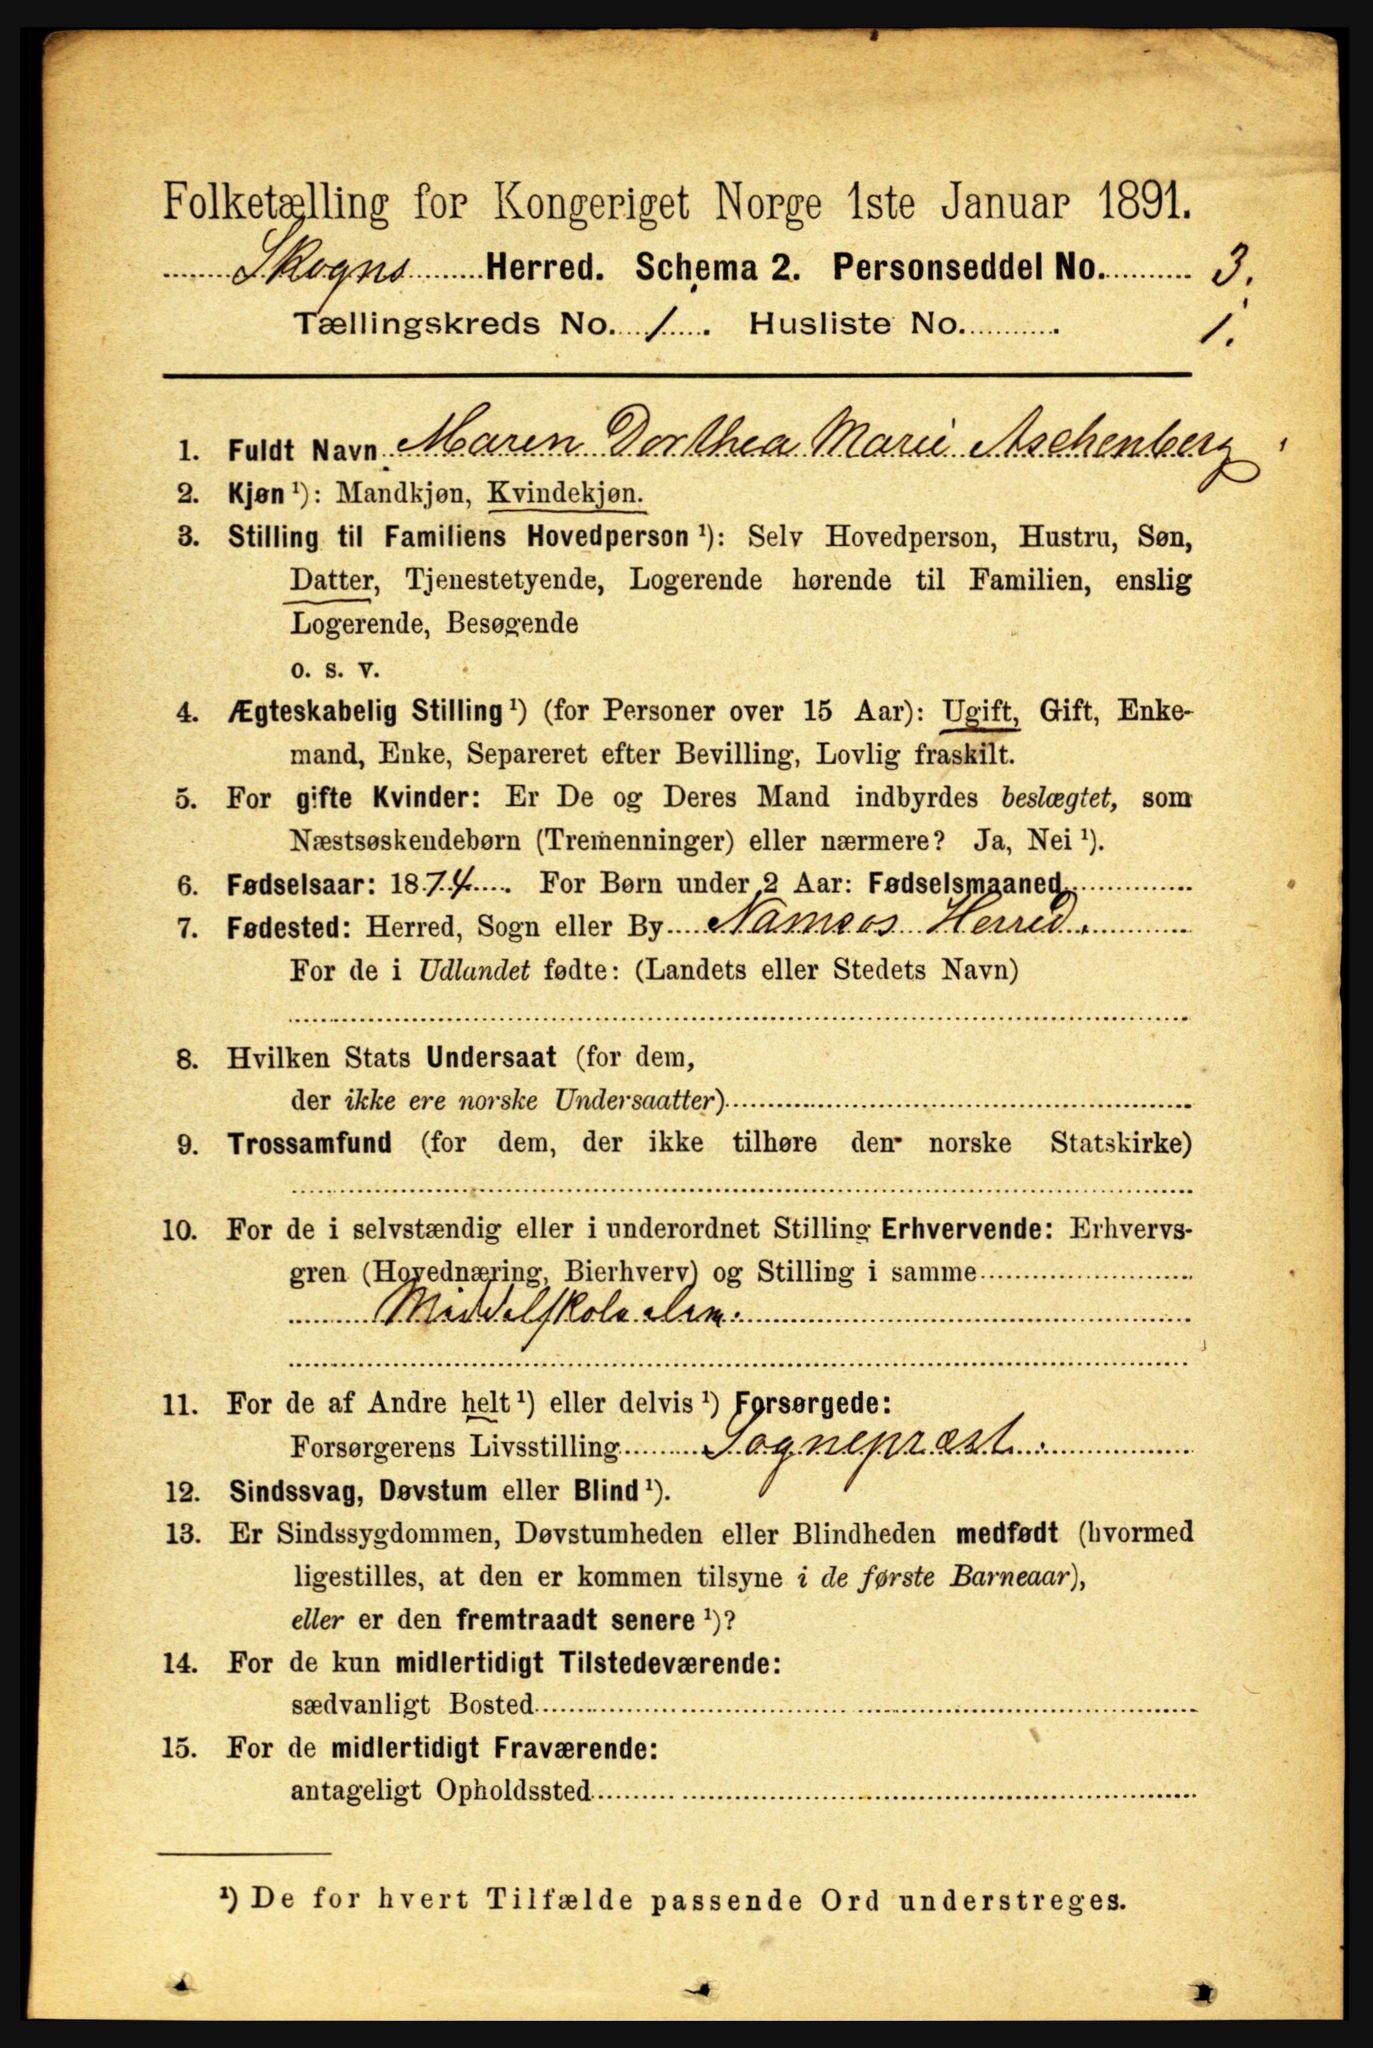 Folketælling for Kongeriget Norge 1ste Januar 1891.
Skogns Herred. Schema 2. Personseddel No. 3.
Tællingskreds No. 1. Husliste No. 1.
1. Fuldt Navn Maren Dorthea Marie Aschenberg
2. Kjøn ¹): Mandkjøn, Kvindekjøn.
3. Stilling til Familiens Hovedperson ¹): Selv Hovedperson, Hustru, Søn,
Datter, Tjenestetyende, Logerende hørende til Familien, enslig
Logerende, Besøgende
o. s. v.
4. Ægteskabelig Stilling ¹) (for Personer over 15 Aar): Ugift, Gift, Enke-
mand, Enke, Separeret efter Bevilling, Lovlig fraskilt.
5. For gifte Kvinder: Er De og Deres Mand indbyrdes beslægtet, som
Næstsøskendebørn (Tremenninger) eller nærmere? Ja, Nei ¹).
6. Fødselsaar: 1874. For Børn under 2 Aar: Fødselsmaaned
7. Fødested: Herred, Sogn eller By Namsos Herred.
For de i Udlandet fødte: (Landets eller Stedets Navn)
8. Hvilken Stats Undersaat (for dem,
der ikke ere norske Undersaatter)
9. Trossamfund (for dem, der ikke tilhøre den norske Statskirke)
10. For de i selvstændig eller i underordnet Stilling Erhvervende: Erhvervs-
gren (Hovednæring, Bierhverv) og Stilling i samme
Middelskole
11. For de af Andre helt ¹) eller delvis ¹) Forsørgede:
Forsørgerens Livsstilling Sognepræst.
12. Sindssvag, Døvstum eller Blind ¹).
13. Er Sindssygdommen, Døvstumheden eller Blindheden medfødt (hvormed
ligestilles, at den er kommen tilsyne i de første Barneaar),
eller er den fremtraadt senere ¹)?
14. For de kun midlertidigt Tilstedeværende:
sædvanligt Bosted
15. For de midlertidigt Fraværende:
antageligt Opholdssted
¹) De for hvert Tilfælde passende Ord understreges.